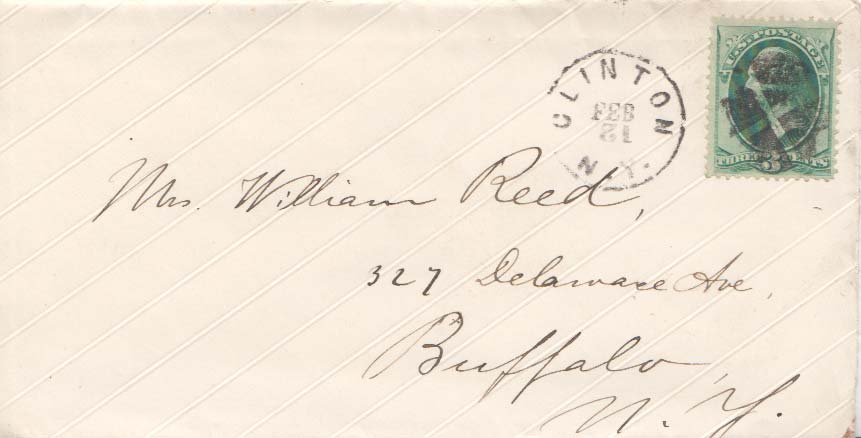 U.S. POSTAGE
THREE 3 CENTS
CLINTON
FEB
21
N.Y.
Mrs. William Reed,
327 Delaware Ave,
Buffalo,
N. Y.